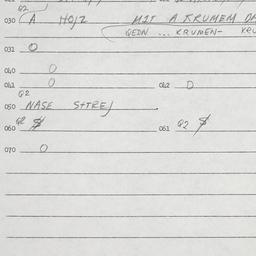 G2
030 A HOJZ MIT A KRUMEM DA
GEDN ... KRUMEN- KRU
031 O
040 O
041 O 042 O
G2
050 NASE STTREJ
060 G2 $ 061 G2 $
070 O